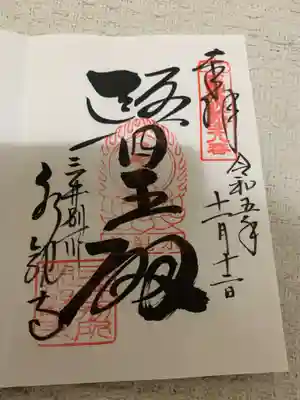 奉拝
令和五年
十一月十二日
醫王殿
三井別所
水観寺